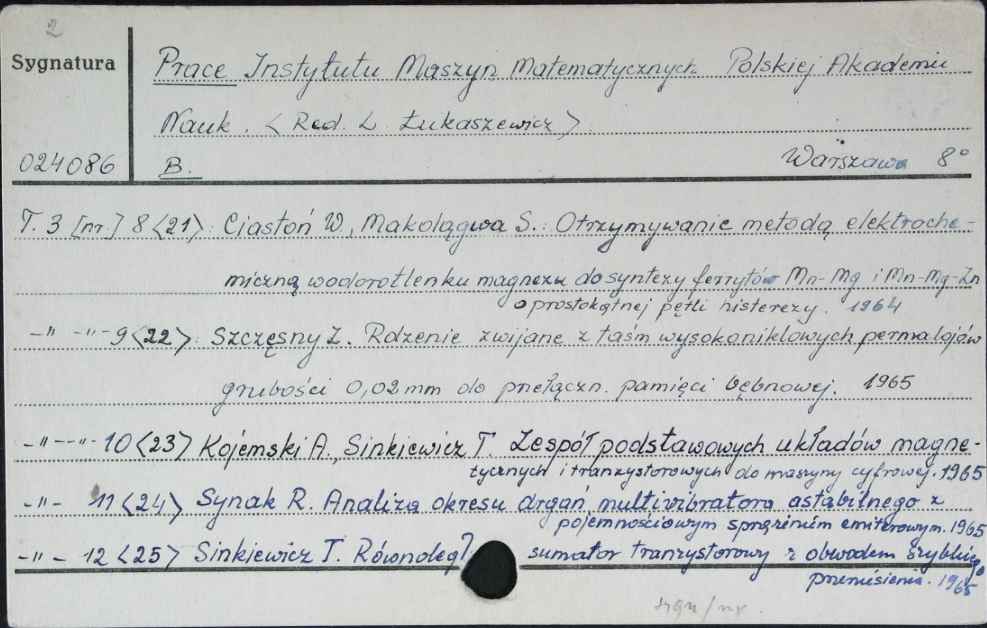 2
Sygnatura
Prace Instytutu Maszyn Matematycznych Polskiej Akademii
Nauk. <Red. L. Łukaszewicz>
024086
B.
Warszawa 8°
T. 3 [nr.] 8 <21>: Ciastoń W., Makolągwa S.: Otrzymywanie metodą elektroche-
miczną wodorotlenku magnezu do syntezy ferrytów Mn-Mg i Mn-Mg-Zn
o prostokątnej pętli histerezy. 1964
-"- -"- 9 <22>: Szczęsny Z. Rdzenie zwijane z taśm wysokoniklowych permalojów
grubości 0,02mm do przełączn. pamięci bębnowej. 1965
-"- -"- 10 <23> Kojemski A., Sinkiewicz T. Zespół podstawowych układów magne-
tycznych i tranzystorowych do maszyny cyfrowej. 1965
-"- 11 <24> Synak R. Analiza okresu drgań multiwibratora astabilnego z
pojemnościowym sprzężeniem emiterowym. 1965
-"- 12 <25> Sinkiewicz T. Równoległ sumator tranzystorowy z obwodem szybkiego
przeniesienia. 1965